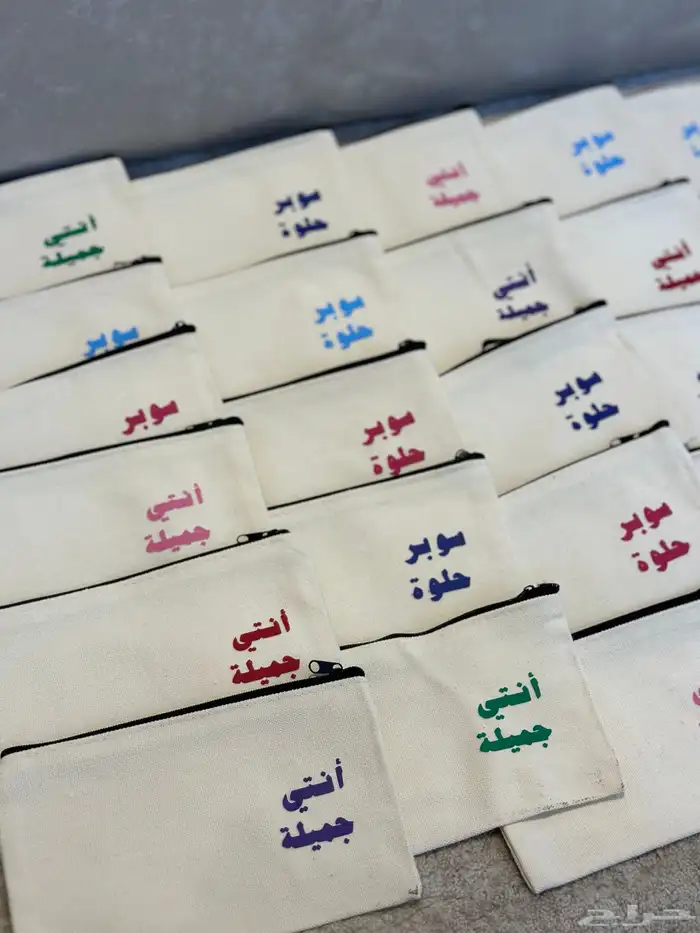 أنتي
جميلة
سوبر
حلوة
أنتي
جميلة
سوبر
حلوة
سوبر
سوبر
حلوة
أنتي
جميلة
أنتي
جميلة
سوبر
سوبر
حلوة
سوبر
حلوة
أنتي
جميلة
سوبر
حلوة
سوبر
حلوة
أنتي
جميلة
أنتي
جميلة
أنتي
جميلة
حراج